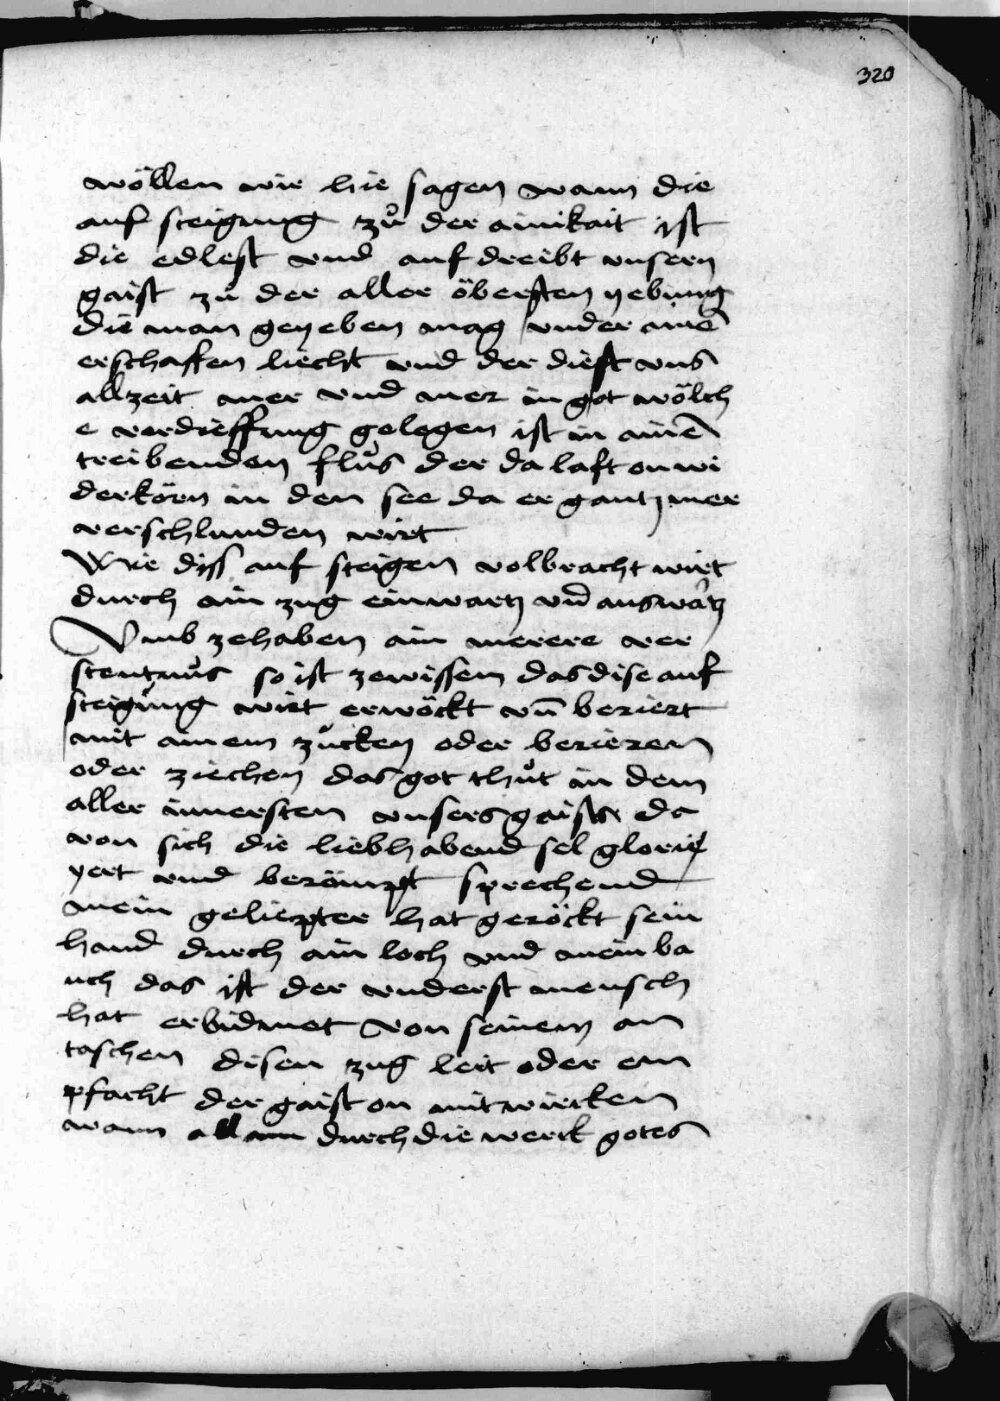 320
wöllen wir hie sagen wann die
auf steigung zů der ainikait ist
die edlest vnd auf dreibt vnsern
gaist zů der aller öbersten yebung
die man geyeben mag vnder ainē
erschaffen liecht vnd der dieft vns
allzeit mer vnd mer in got wölch
e verdieffung gelegen ist in ainē
treibenden flůs der da laft on wi
derkörn in den see da er gantz mer
verschlunden wirt
Wie diss auf steigen volbracht wirt
durch ain zug einwartz vn̄ auswartz
Vmb zehaben ain merere ver
stentnus so ist zewissen das dise auf
steigung wirt erwöckt vn̄ beriert
mit ainem zucken oder berieren
oder ziechen das got thůt in dem
aller innersten vnsers gaists da
von sich die liebhabend sel glorifi
yert vnd berömpt sprechend
mein geliepter hat geröckt sein
hand durch ain loch vnd mein ba
uch das ist der vnderst mensch
hat erbidmet von seinem an
taschen disen zug leit oder em
pfacht der gaist on mitwircken
wann allain durch die werck gotes